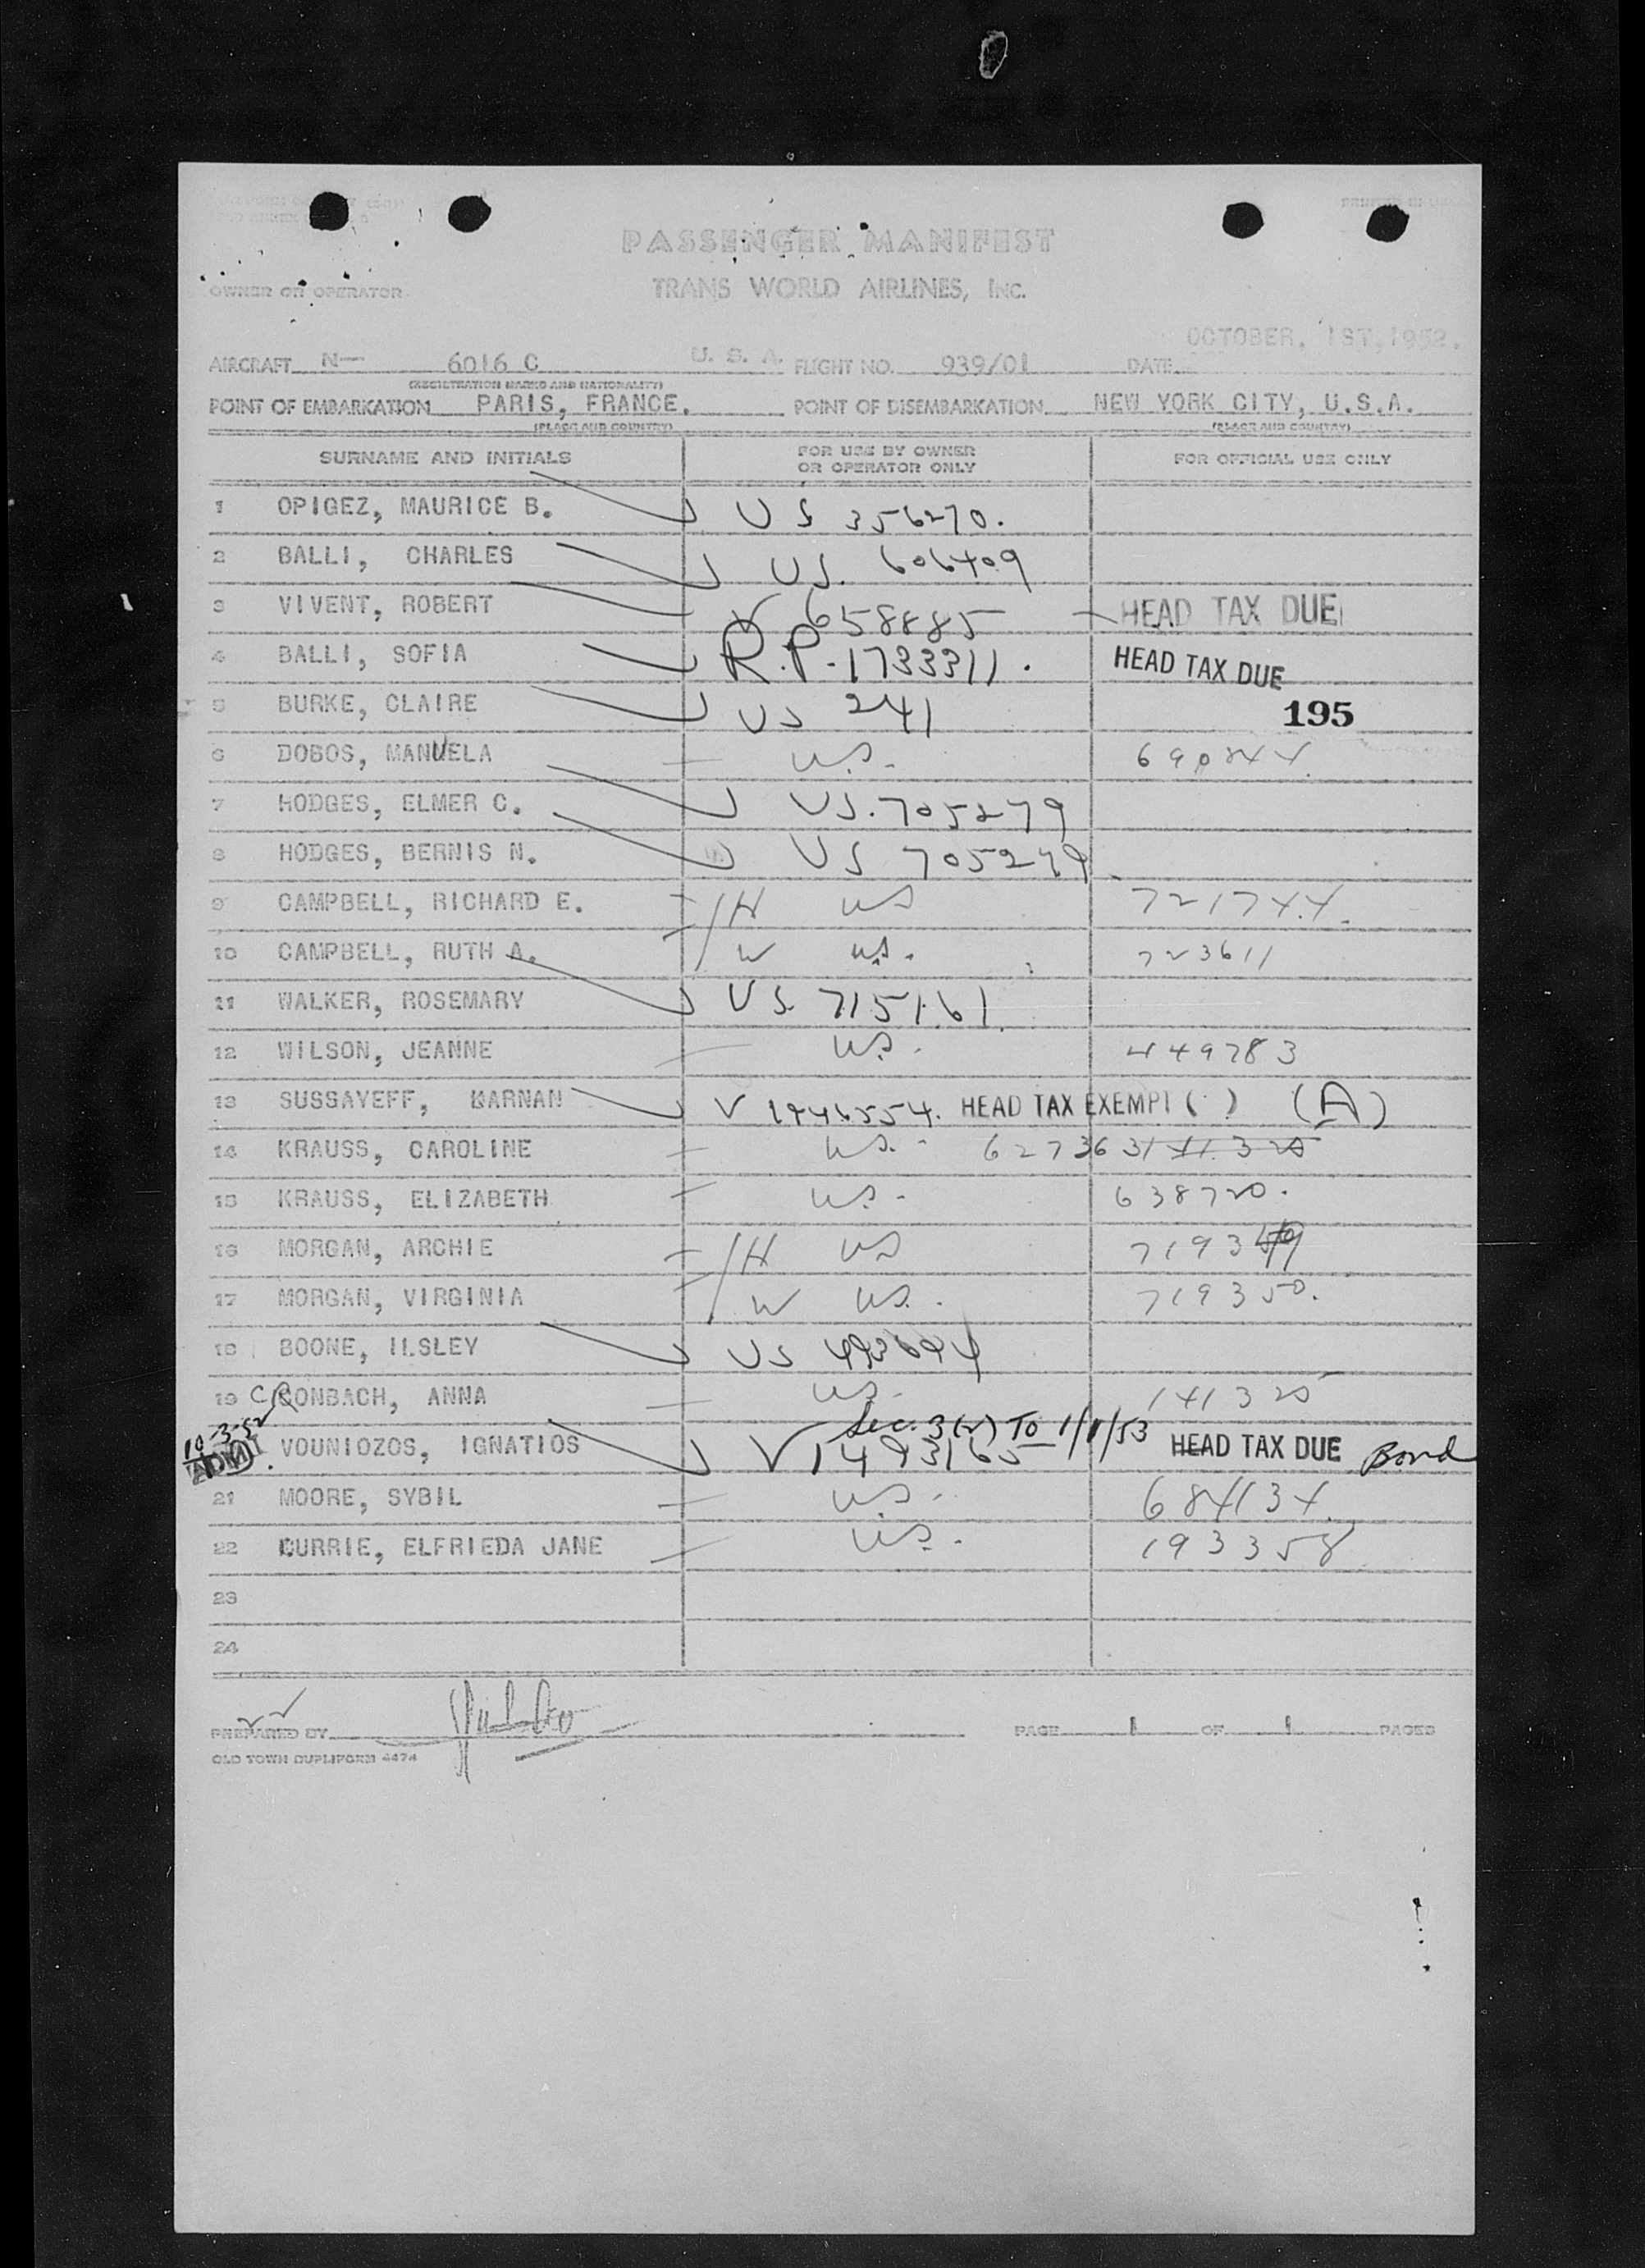 PASSENGER MANIFEST
OWNER OR OPERATOR TRANS WORLD AIRLINES, INC.
OCTOBER, 1ST, 1952.
AIRCRAFT N— 6016 C U. S. A. FLIGHT NO. 939/01 DATE
(REGISTRATION MARKS AND NATIONALITY)
POINT OF EMBARKATION PARIS, FRANCE. POINT OF DISEMBARKATION NEW YORK CITY, U.S.A.
(PLACE AND COUNTRY) (PLACE AND COUNTRY)
SURNAME AND INITIALS FOR USE BY OWNER OR OPERATOR ONLY FOR OFFICIAL USE ONLY
1 OPIGEZ, MAURICE B. US 356270.
2 BALLI, CHARLES US. 606409
3 VIVENT, ROBERT V 658885 HEAD TAX DUE
4 BALLI, SOFIA R.P. 1733311. HEAD TAX DUE
5 BURKE, CLAIRE US 241 195
6 DOBOS, MANUELA U.S. 690844
7 HODGES, ELMER C. US. 705279
8 HODGES, BERNIS N. US 705279
9 CAMPBELL, RICHARD E. H US 721744.
10 CAMPBELL, RUTH A. W U.S. 723611
11 WALKER, ROSEMARY US 715161
12 WILSON, JEANNE U.S. 449783
13 SUSSAYEFF, BARNAN V 1446554. HEAD TAX EXEMPT ( ) (A)
14 KRAUSS, CAROLINE U.S. 627363 141320
15 KRAUSS, ELIZABETH U.S. 638720.
16 MORGAN, ARCHIE H US 719349
17 MORGAN, VIRGINIA W U.S. 719350.
18 BOONE, ILSLEY US 493694
19 CRONBACH, ANNA U.S. 141320
10-3-52 Sec. 3(2) To 1/1/53
ADM VOUNIOZOS, IGNATIOS V 1493165 HEAD TAX DUE Bond
21 MOORE, SYBIL U.S. 684134.
22 CURRIE, ELFRIEDA JANE U.S. 193358
23
24
PREPARED BY PAGE 1 OF 1 PAGES
OLD TOWN DUPLIFORM 4474